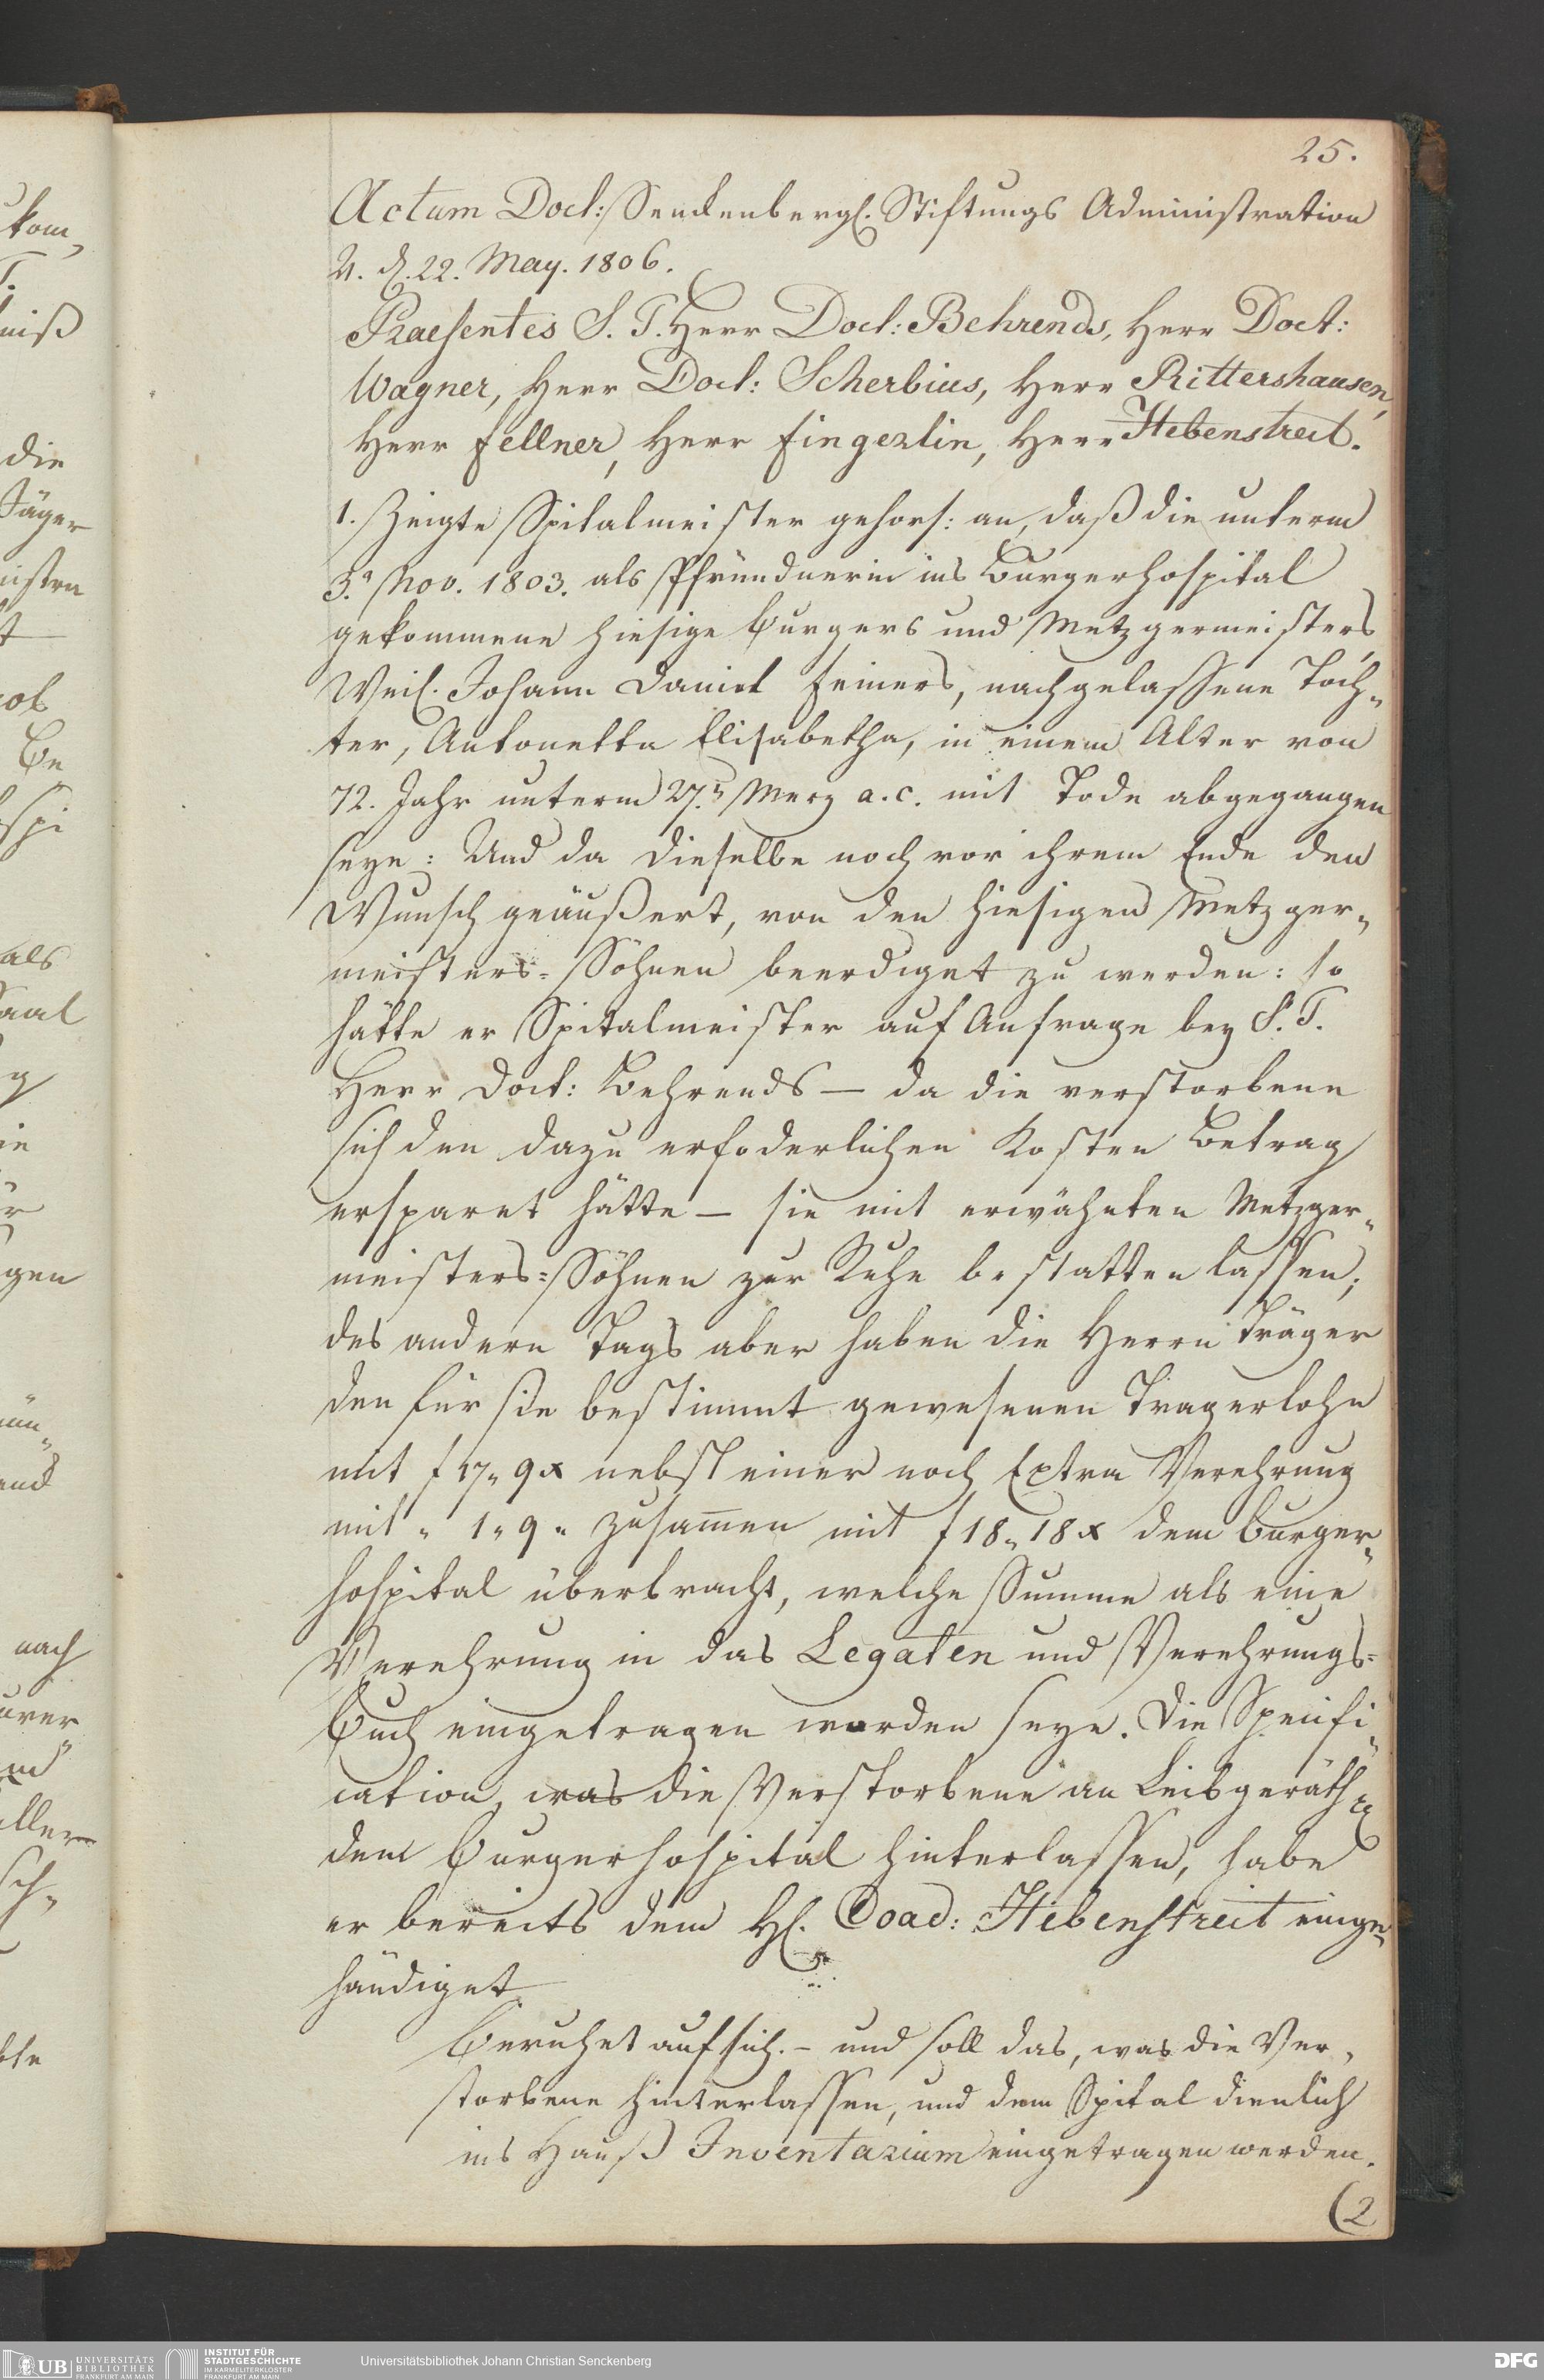 25.
Actum Doct: Senckenbergl. Stiftungs Administration
d. 22. May. 1806.
Praesentes S. T. Herr Doct: Behrends, Herr Doct:
Wagner, Herr Doct: Scherbius, Herr Rittershausen,
Herr Fellner, Herr Fingerlin, Herr Hebenstreit.
1. Zeigte Spitalmeister gehors: an, daß die unterm
3. Nov. 1803. als Pfründnerin ins Burgerhospital
gekommene hiesige Burgers und Metzgermeisters,
Weil. Johann Daniel Feiners, nachgelassene Toch„
ter, Antonetta Elisabetha, in einem Alter von
72. Jahr unterm 27. Merz a. c. mit Tode abgegangen
seye: Und da dieselbe noch vor ihrem Ende den
Wunsch geäußert, von den hiesigen Metzger„
meisters=Söhnen beerdiget zu werden: so
hätte er Spitalmeister auf Anfrage bey S. T.
Herr Doct: Behrends — da die verstorbene
sich den dazu erfoderlichen Kosten Betrag
ersparet hätte — sie mit erwähnten Metzger„
meisters=Söhnen zur Ruhe bestatten lassen;
des andern Tags aber haben die Herrn Träger
den für sie bestimmt gewesenen Tragerlohn
mit f 17„ 9 x nebst einer noch Extra Verehrung
mit „ 1„ 9 „ zusamen mit f 18„ 18 x dem Burger„
hospital überbracht, welche Summe als eine
Verehrung in das Legaten und Verehrungs=
Buch eingetragen worden seye. Die Specifi„
cation, was die Verstorbene an Leibgeräth
dem Burgerhospital hinterlassen, habe
er bereits dem H. Coad: Hebenstreit einge„
händiget
Beruhet auf sich. – und soll das, was die Ver„
storbene hinterlassen, und dem Spital dienlich
ins Hauß Inventarium eingetragen werden.
(2
kom„
T.
niß
die
Jäger
Be
spi
als
Saal
gen
nach
aller
UB UNIVERSITÄTS
BIBLIOTHEK
FRANKFURT AM MAIN
INSTITUT FÜR
STADTGESCHICHTE
IM KARMELITERKLOSTER
FRANKFURT AM MAIN
Universitätsbibliothek Johann Christian Senckenberg
DFG